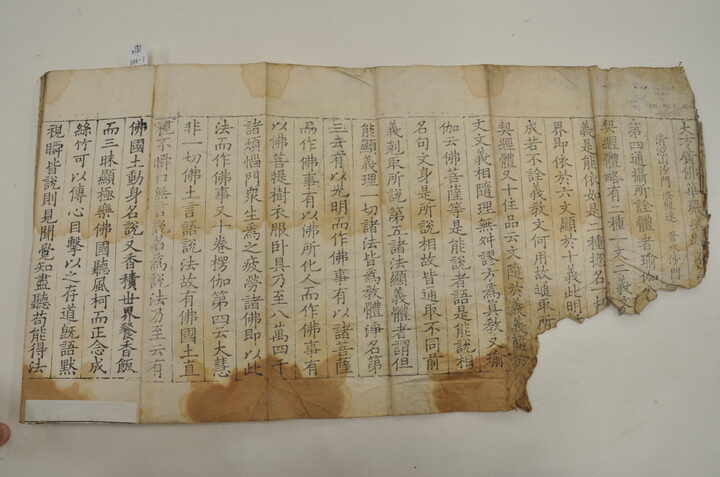 大方廣佛華嚴經疏
清涼山沙門 澄觀述 晉水沙門
第四通攝所詮體者瑜伽
契經體略有二種一文二義文
義是能依如是二種揔名一切
界即依於六文顯於十義此明
成若不詮義教文何用故通取所
契經體又十住品云文隨於義義隨於
文文義相隨理無舛謬方為真教又瑜
伽云佛菩薩等是能說者語是能說相
名句文身是所說相故皆通取不同前
義列取所說第五諸法顯義體者謂但
能顯義理一切諸法皆為教體淨名第
三云有以光明而作佛事有以諸菩薩
而作佛事有以佛所化人而作佛事有
以佛菩提樹衣服卧具乃至八萬四千
諸煩惱門衆生為之疲勞諸佛即以此
法而作佛事又十卷楞伽第四云大慧
非一切佛土言語說法故有佛國土直
視不瞬口無言說名為說法乃至云有
佛國土動身名說又香積世界餐香飯
而三昧顯極樂佛國聽風柯而正念成
絲竹可以傳心目擊以之存道既語默
視瞬皆說則見聞覺知盡聽苟能得法